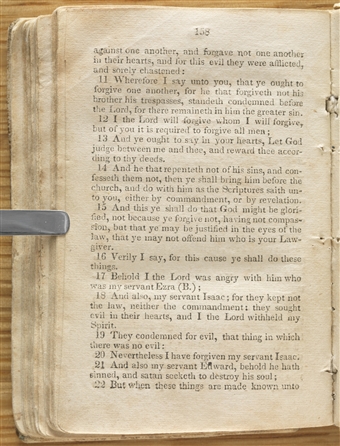 158
against one another, and forgave not one another
in their hearts, and for this evil they were afflicted,
and sorely chastened:
11 Wherefore I say unto you, that ye ought to
forgive one another, for he that forgiveth not his
brother his trespasses, standeth condemned before
the Lord, for there remaineth in him the greater sin.
12 I the Lord will forgive whom I will forgive,
but of you it is required to forgive all men;
13 And ye ought to say in your hearts, Let God
judge between me and thee, and reward thee accor-
ding to thy deeds.
14 And he that repenteth not of his sins, and con-
fesseth them not, then ye shall bring him before the
church, and do with him as the Scriptures saith un-
to you, either by commandment, or by revelation.
15 And this ye shall do that God might be glori-
fied, not because ye forgive not, having not compas-
sion, but that ye may be justified in the eyes of the
law, that ye may not offend him who is your Law-
giver.
16 Verily I say, for this cause ye shall do these
things.
17 Behold I the Lord was angry with him who
was my servant Ezra (B.);
18 And also, my servant Isaac; for they kept not
the law, neither the commandment; they sought
evil in their hearts, and I the Lord withheld my
Spirit.
19 They condemned for evil, that thing in which
there was no evil:
20 Nevertheless I have forgiven my servant Isaac.
21 And also my servant Edward, behold he hath
sinned, and satan seeketh to destroy his soul;
22 But when these things are made known unto